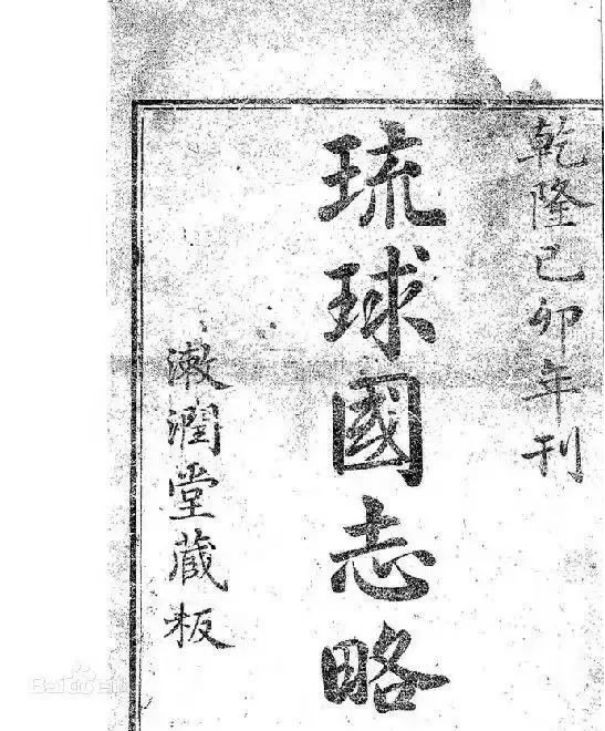 乾隆己卯年刊
琉球國志略
漱潤堂藏板
Baidu百科